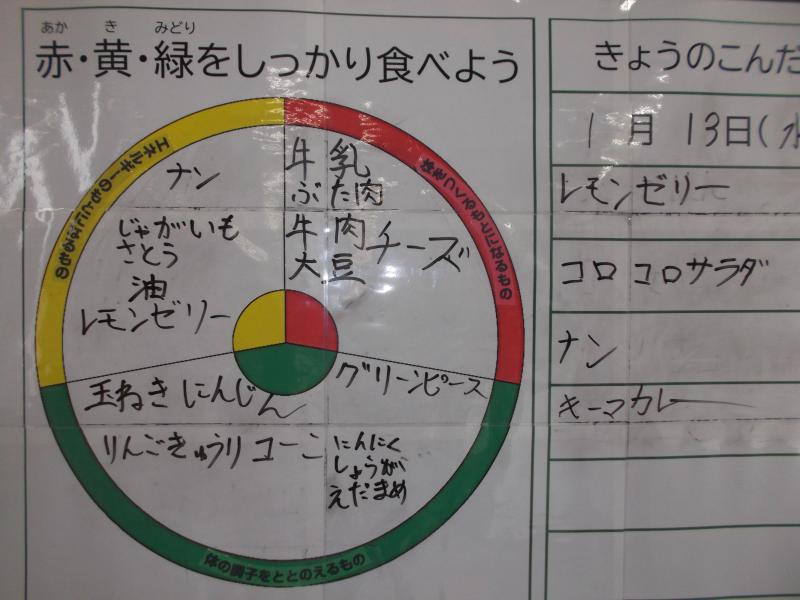 あか き みどり
赤・黄・緑をしっかり食べよう
エネルギーのもとになるもの
体をつくるもとになるもの
ナン
じゃがいも
さとう
油
レモンゼリー
牛乳
ぶた肉
牛肉
大豆
チーズ
玉ねぎ にんじん
グリーンピース
りんご きゅうり コーン
にんにく
しょうが
えだまめ
体の調子をととのえるもの
きょうのこんだ
1月13日(水
レモンゼリー
コロコロサラダ
ナン
キーマカレー